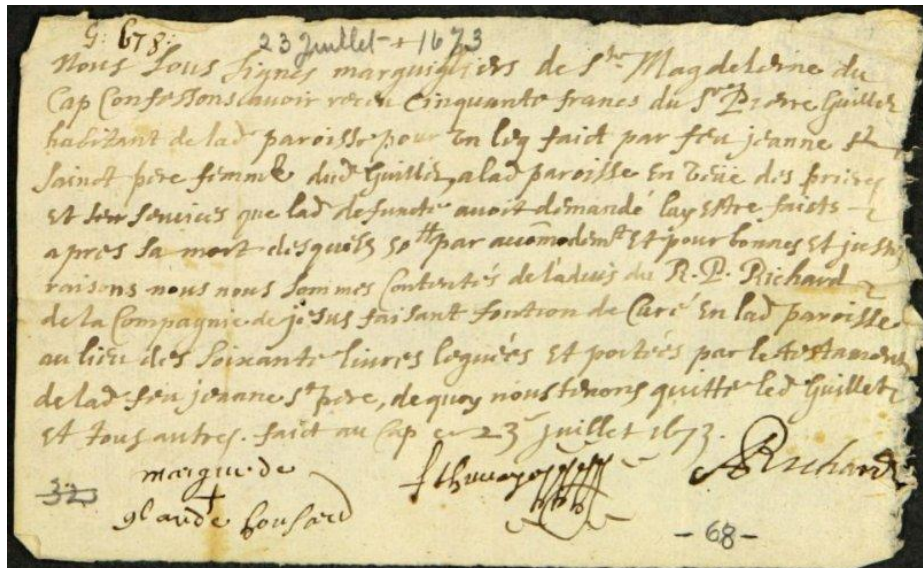 G: 678:
23 Juillet 1673
Nous Sous Signés marguigliers de Ste Magdeleine du
Cap Confessons avoir receu Cinquante francs du Sr Pierre Guillet
habitant de lad paroisse pour un leg faict par feu jeanne St
Sainct pere femme dud Guillet, a lad paroisse En veüe des prieres
Et Services que lad defuncte avoit demandé luy Estre faicts
apres sa mort desquels 50tt par accõmodemt Et pour bonnes Et justes
raisons nous nous Sommes Contentés de l'advis du R. P. Richard
de la Compagnie de jesus faisant fontion de Curé En lad paroisse
au lieu des Soixante livres leguées Et portées par le testament
de lad feu jeanne St pere, de quoy nous tenons quitte led Guillet
Et tous autres. faict au Cap ce 23 juillet 1673.
marque de
glaude housard
Richard
32
-68-